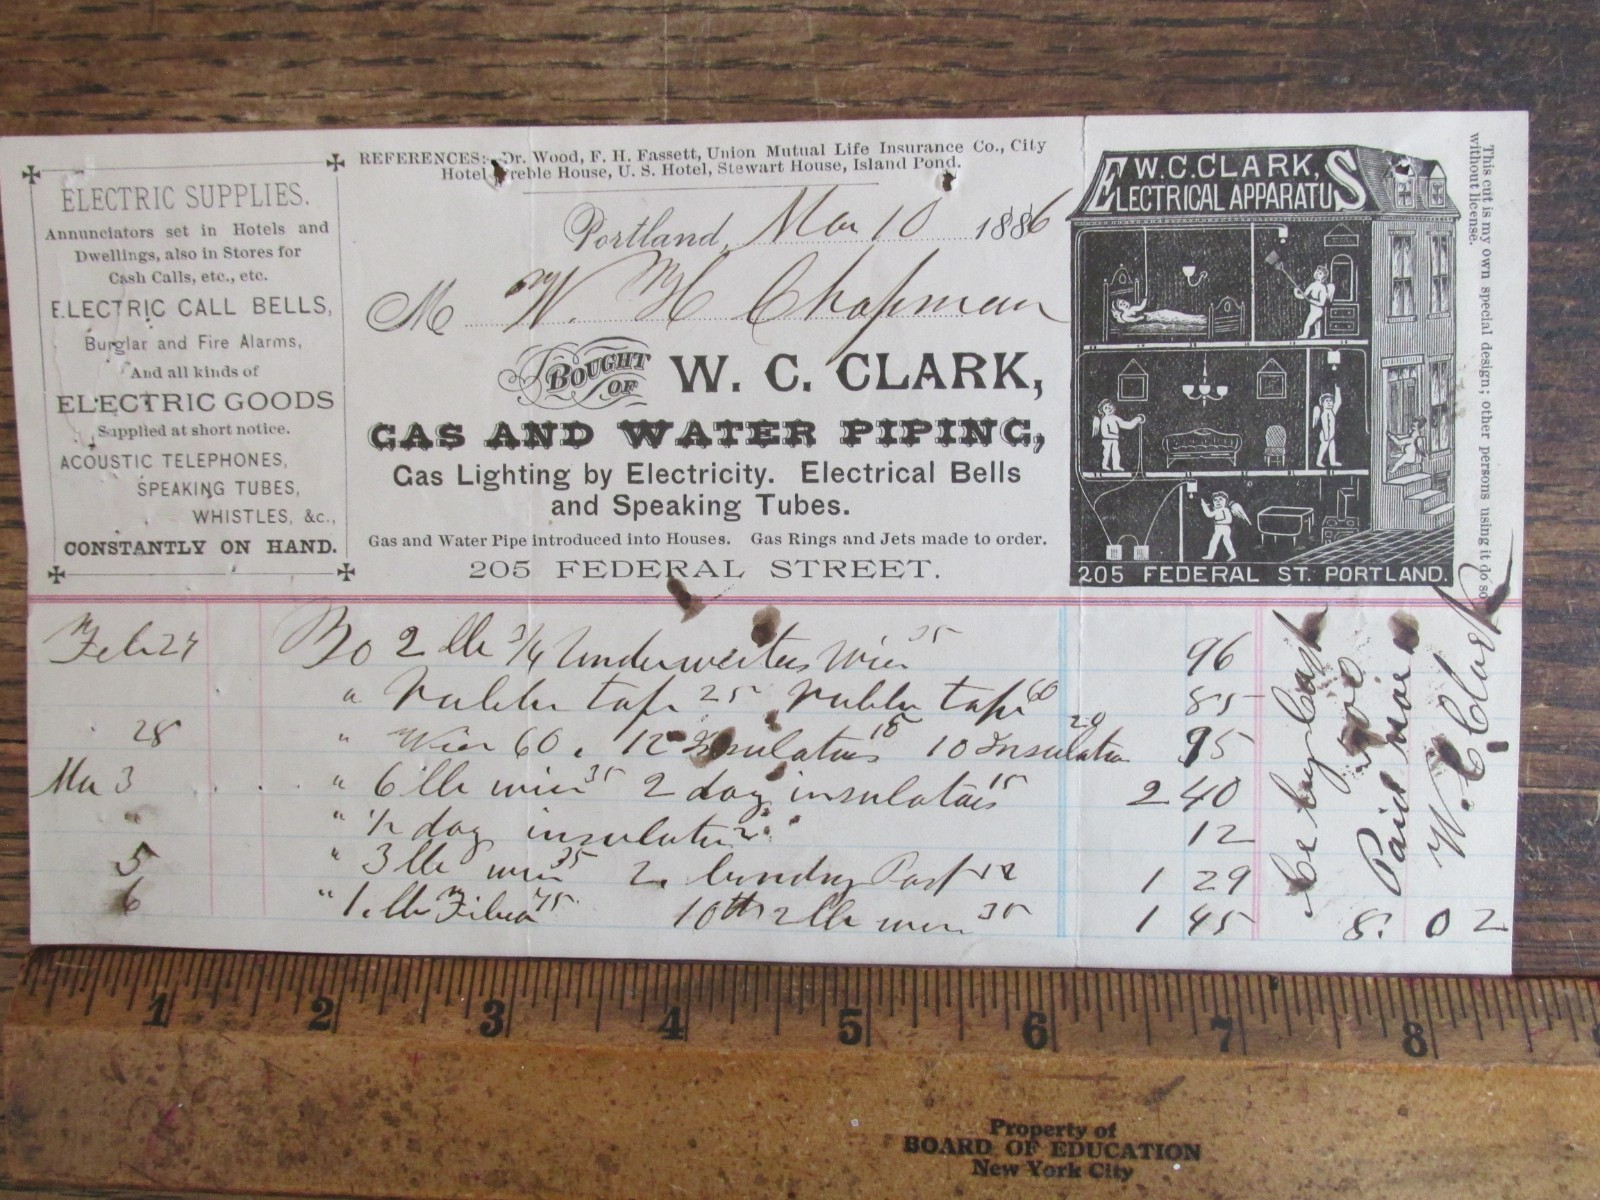 REFERENCES:- Dr. Wood, F. H. Fassett, Union Mutual Life Insurance Co., City
Hotel Preble House, U. S. Hotel, Stewart House, Island Pond.
ELECTRIC SUPPLIES.
Annunciators set in Hotels and
Dwellings, also in Stores for
Cash Calls, etc., etc.
ELECTRIC CALL BELLS,
Burglar and Fire Alarms,
And all kinds of
ELECTRIC GOODS
Supplied at short notice.
ACOUSTIC TELEPHONES,
SPEAKING TUBES,
WHISTLES, &c.,
CONSTANTLY ON HAND.
Portland, Mar 10 1886
M W. H Chapman
BOUGHT OF W. C. CLARK,
GAS AND WATER PIPING,
Gas Lighting by Electricity. Electrical Bells
and Speaking Tubes.
Gas and Water Pipe introduced into Houses. Gas Rings and Jets made to order.
205 FEDERAL STREET.
W. C. CLARK,
ELECTRICAL APPARATUS
205 FEDERAL ST. PORTLAND.
This cut is my own special design; other persons using it do so
without license.
Feb 27 To 2 lb 3/4 Underwriters Wier 35 96
" rubber tape 25 rubber tape 60 85
28 " Wier 60. 12 Insulators 15 10 Insulator 20 95
Mar 3 " 6 lb wier 35 2 doz insulators 15 2 40
" " 1/2 doz insulators 12
5 " 3 lb wier 35 2 12 1 29
6 " 1 lb 75 10th 2 lb wier 35 1 45
8. 02
Cr by Cash
Paid
W. C. Clark
1 2 3 4 5 6 7 8 9
Property of
BOARD OF EDUCATION
New York City